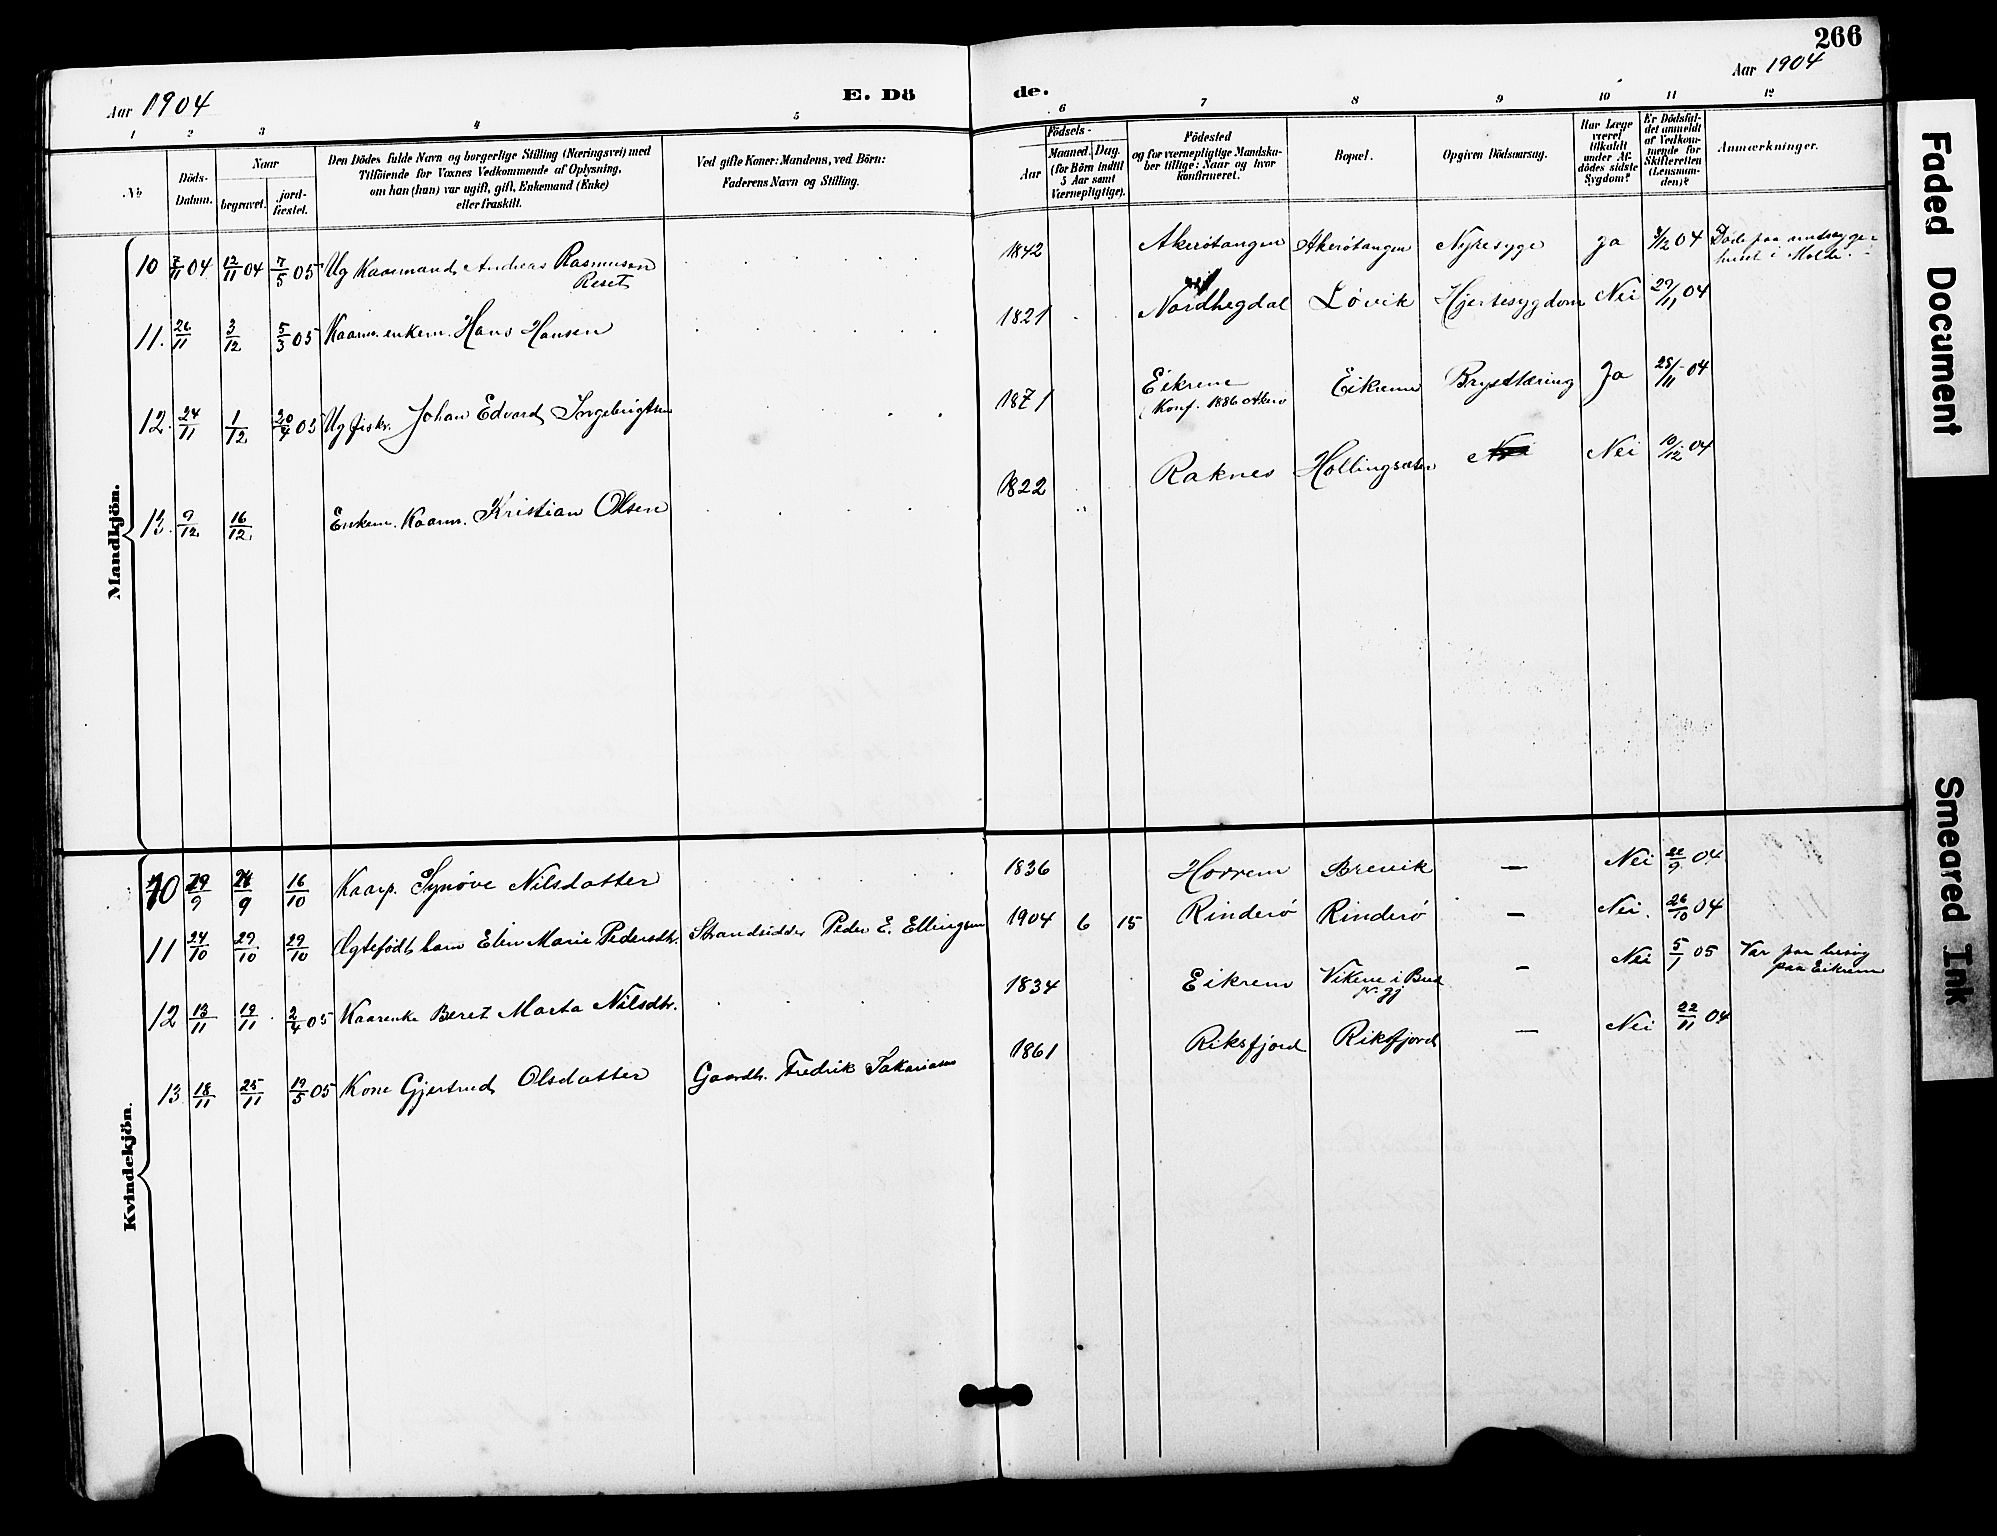 266
Aar 1904
E. Dö
de.
Aar 1904
1 2 3 4 5 6 7 8 9 10 11 12
No
Döds-
Datum.
Naar
begravet.
jord-
fæstet.
Den Dödes fulde Navn og borgerlige Stilling (Næringsvei) med
Tilföiende for Voxnes Vedkommende af Oplysning,
om han (hun) var ugift, gift, Enkemand (Enke)
eller fraskilt.
Ved gifte Koner: Mandens, ved Börn:
Faderens Navn og Stilling.
Födsels-
Aar
Maaned. Dag.
(for Börn indtil
5 Aar samt
Værnepligtige).
Födested
og for værnepligtige Mandska-
ber tillige: Naar og hvor
konfirmeret.
Bopæl.
Opgiven Dödsaarsag.
Har Læge
været
tilkaldt
under Af-
dödes sidste
Sygdom?
Er Dödsfal-
det anmeldt
af Vedkom-
mende for
Skifteretten
(Lensman-
den)?
Anmerkninger.
Mandkjön.
10 7/11 04 12/11 04 7/5 05 Ug Kaarmand Andreas Rasmusen
Reset
1842 Akerøtangen Akerøtangen Nyresyge Ja 7/12 04 Døde paa amtssyge-
huset i Molde.
11. 26/11 3/12 5/3 05 Kaarm. enkem. Hans Hansen
1821 Nordhegdal Løvik Hjertesygdom Nei 29/11 04
12. 24/11 1/12 20/4 05 Ug fisk. Johan Edvard Ingebrigtsen
1871 Eikrem Eikrem Brysttæring Ja 28/11 04
Konf. 1886 Akerø
13. 9/12 16/12 Enkem. Kaarm. Kristian Olsen
1822 Raknes Hollingsæter Nei 10/12 04
Kvindekjön.
10 19/9 24/9 16/10 Kaarp. Synøve Nilsdatter
1836 Horrem Brevik — Nei 22/9 04
11 24/10 29/10 29/10 Ægtefødt barn Elen Marie Pedersdtr. Strandsidder Peder E. Ellingsen
1904 6 15 Rinderø Rinderø — Nei. 26/10 04
12 13/11 19/11 2/4 05 Kaarenke Beret Marta Nilsdtr.
1834 Eikrem Vikene i Bud
pr.gj — Nei 5/1 05 Var paa besøg
paa Eikrem
13 18/11 25/11 19/5 05 Kone Gjertrud Olsdatter Gaardb. Fredrik Sakariasen
1861 Riksfjord Riksfjord — Nei 22/11 04
Faded Document
Smeared Ink